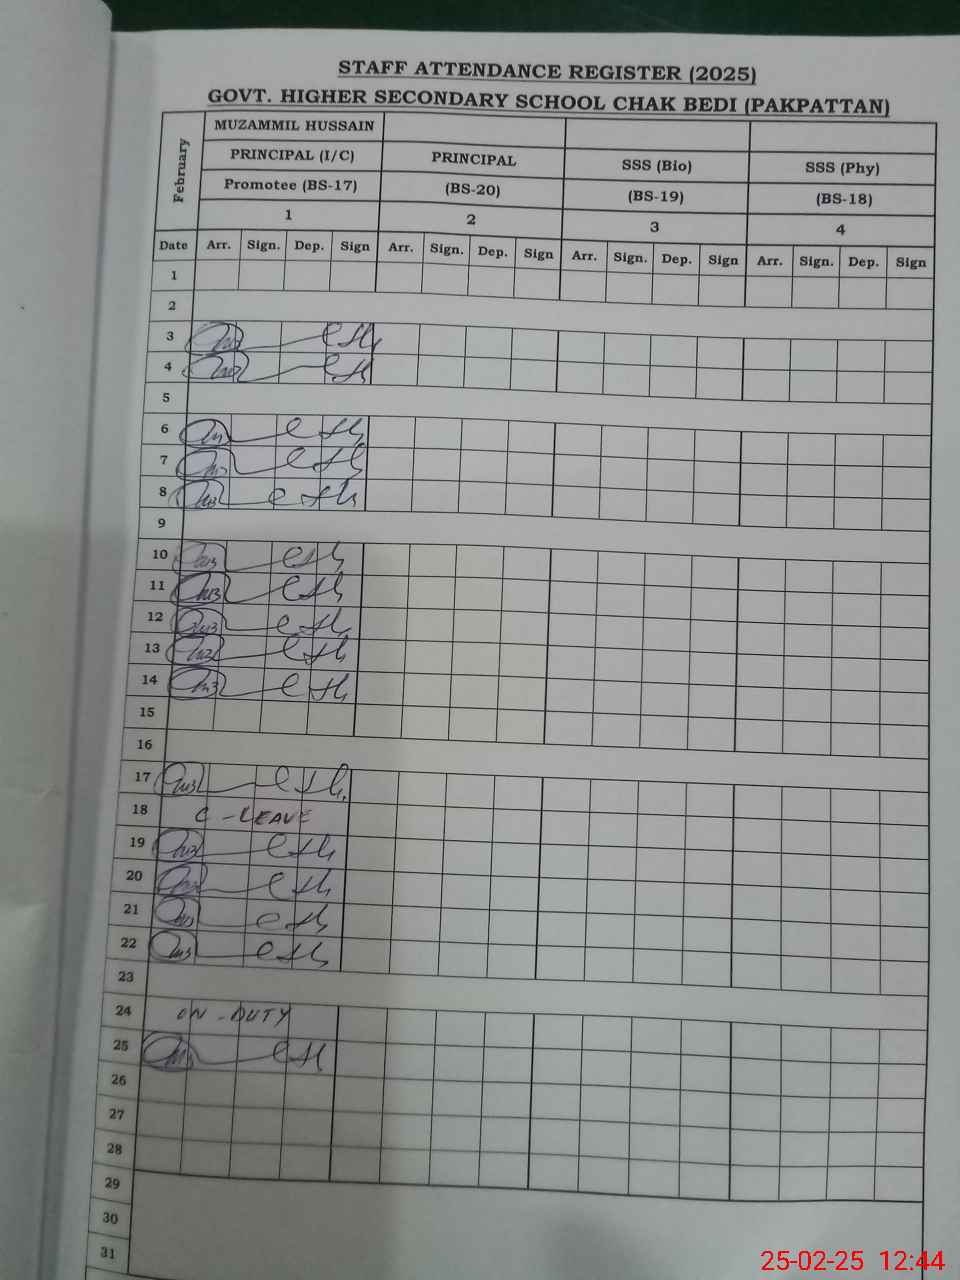 STAFF ATTENDANCE REGISTER (2025)
GOVT. HIGHER SECONDARY SCHOOL CHAK BEDI (PAKPATTAN)
February
MUZAMMIL HUSSAIN
PRINCIPAL (I/C) PRINCIPAL SSS (Bio) SSS (Phy)
Promotee (BS-17) (BS-20) (BS-19) (BS-18)
1 2 3 4
Date Arr. Sign. Dep. Sign Arr. Sign. Dep. Sign Arr. Sign. Dep. Sign Arr. Sign. Dep. Sign
1
2
3
4
5
6
7
8
9
10
11
12
13
14
15
16
17
18 C-LEAVE
19
20
21
22
23
24 ON-DUTY
25
26
27
28
29
30
31
25-02-25 12:44